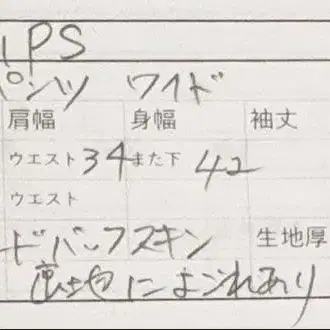 IPS
パンツ ワイド
肩幅 身幅 袖丈
ウエスト 34 また下 42
ウエスト
ドバックスキン 生地厚
裏地によごれあり